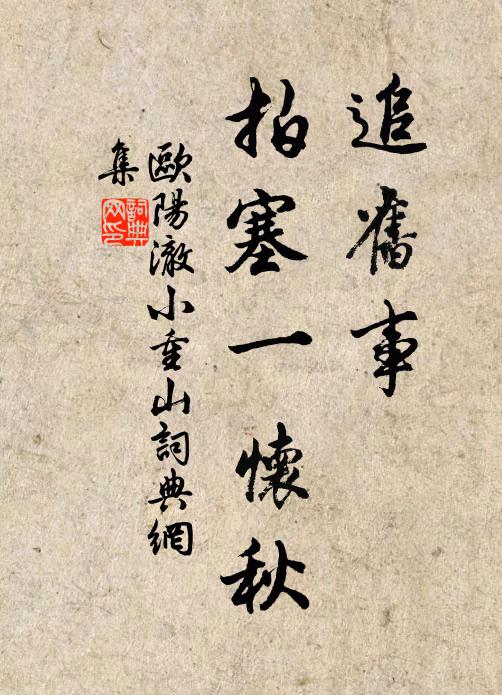 追舊事
拍塞一懷秋
歐陽澈小重山詞典網
集
詞典
网印